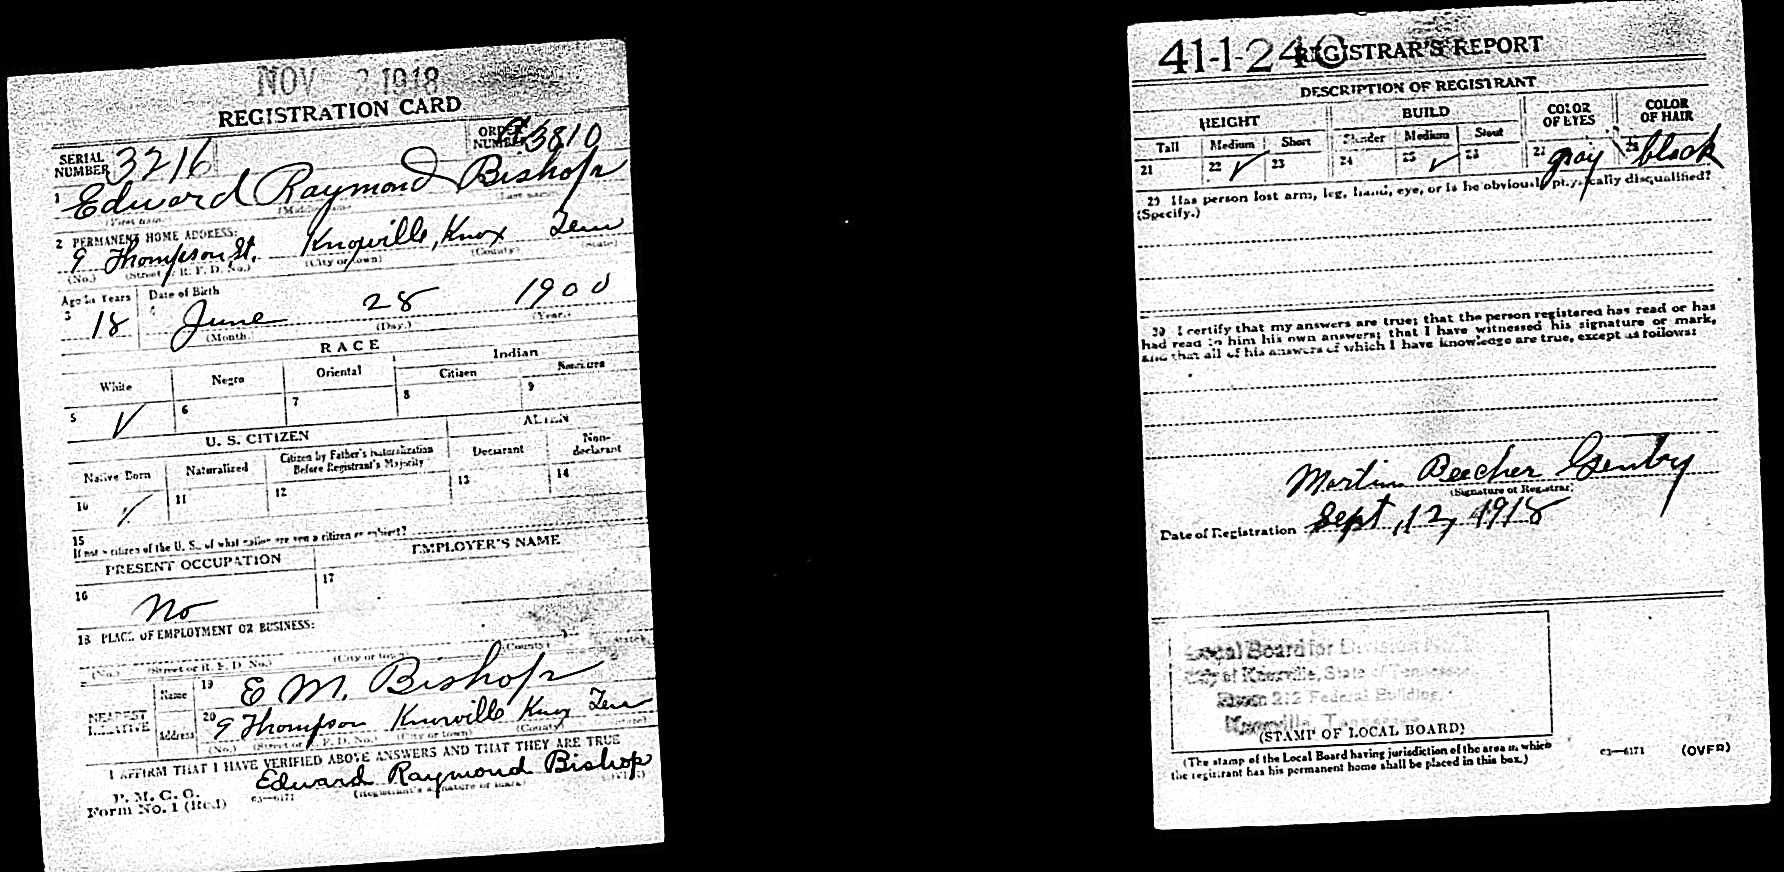 NOV 2 1918
REGISTRATION CARD
SERIAL NUMBER 3216 ORDER NUMBER 3810
1 Edward Raymond Bishop
(First name) (Middle name) (Last name)
2 PERMANENT HOME ADDRESS:
9 Thompson St. Knoxville, Knox Tenn
(No.) (Street or R. F. D. No.) (City or town) (County) (State)
Age in Years Date of Birth
3 18 4 June 28 1900
(Month.) (Day.) (Year.)
RACE
White Negro Oriental Indian
Citizen Noncitizen
5 ✓ 6 7 8 9
U. S. CITIZEN ALIEN
Native Born Naturalized Citizen by Father's Naturalization Before Registrant's Majority Declarant Non-declarant
10 ✓ 11 12 13 14
15
If not a citizen of the U. S., of what nation are you a citizen or subject?
PRESENT OCCUPATION EMPLOYER'S NAME
16 No 17
18 PLACE OF EMPLOYMENT OR BUSINESS:
(No.) (Street or R. F. D. No.) (City or town) (County) (State)
NEAREST RELATIVE
Name 19 E M. Bishop
Address 20 9 Thompson Knoxville Knox Tenn
(No.) (Street or R. F. D. No.) (City or town) (County) (State)
I AFFIRM THAT I HAVE VERIFIED ABOVE ANSWERS AND THAT THEY ARE TRUE
P. M. G. O.
Form No. 1 (Red) 03—6171 Edward Raymond Bishop
(Registrant's signature or mark) (OVER)
41-1-24 C
REGISTRAR'S REPORT
DESCRIPTION OF REGISTRANT
HEIGHT BUILD COLOR OF EYES COLOR OF HAIR
Tall Medium Short Slender Medium Stout
21 22 ✓ 23 24 25 ✓ 26 27 gray 28 black
29 Has person lost arm, leg, hand, eye, or is he obviously physically disqualified?
(Specify.)
30 I certify that my answers are true; that the person registered has read or has
had read to him his own answers; that I have witnessed his signature or mark,
and that all of his answers of which I have knowledge are true, except as follows:
Martin Beecher Gentry
(Signature of Registrar)
Date of Registration Sept, 12, 1918
Local Board for Division No.
City of Knoxville, State of Tennessee,
Room 212 Federal Building,
Knoxville, Tennessee
(STAMP OF LOCAL BOARD)
(The stamp of the Local Board having jurisdiction of the area in which
the registrant has his permanent home shall be placed in this box.)
03—6171 (OVER)